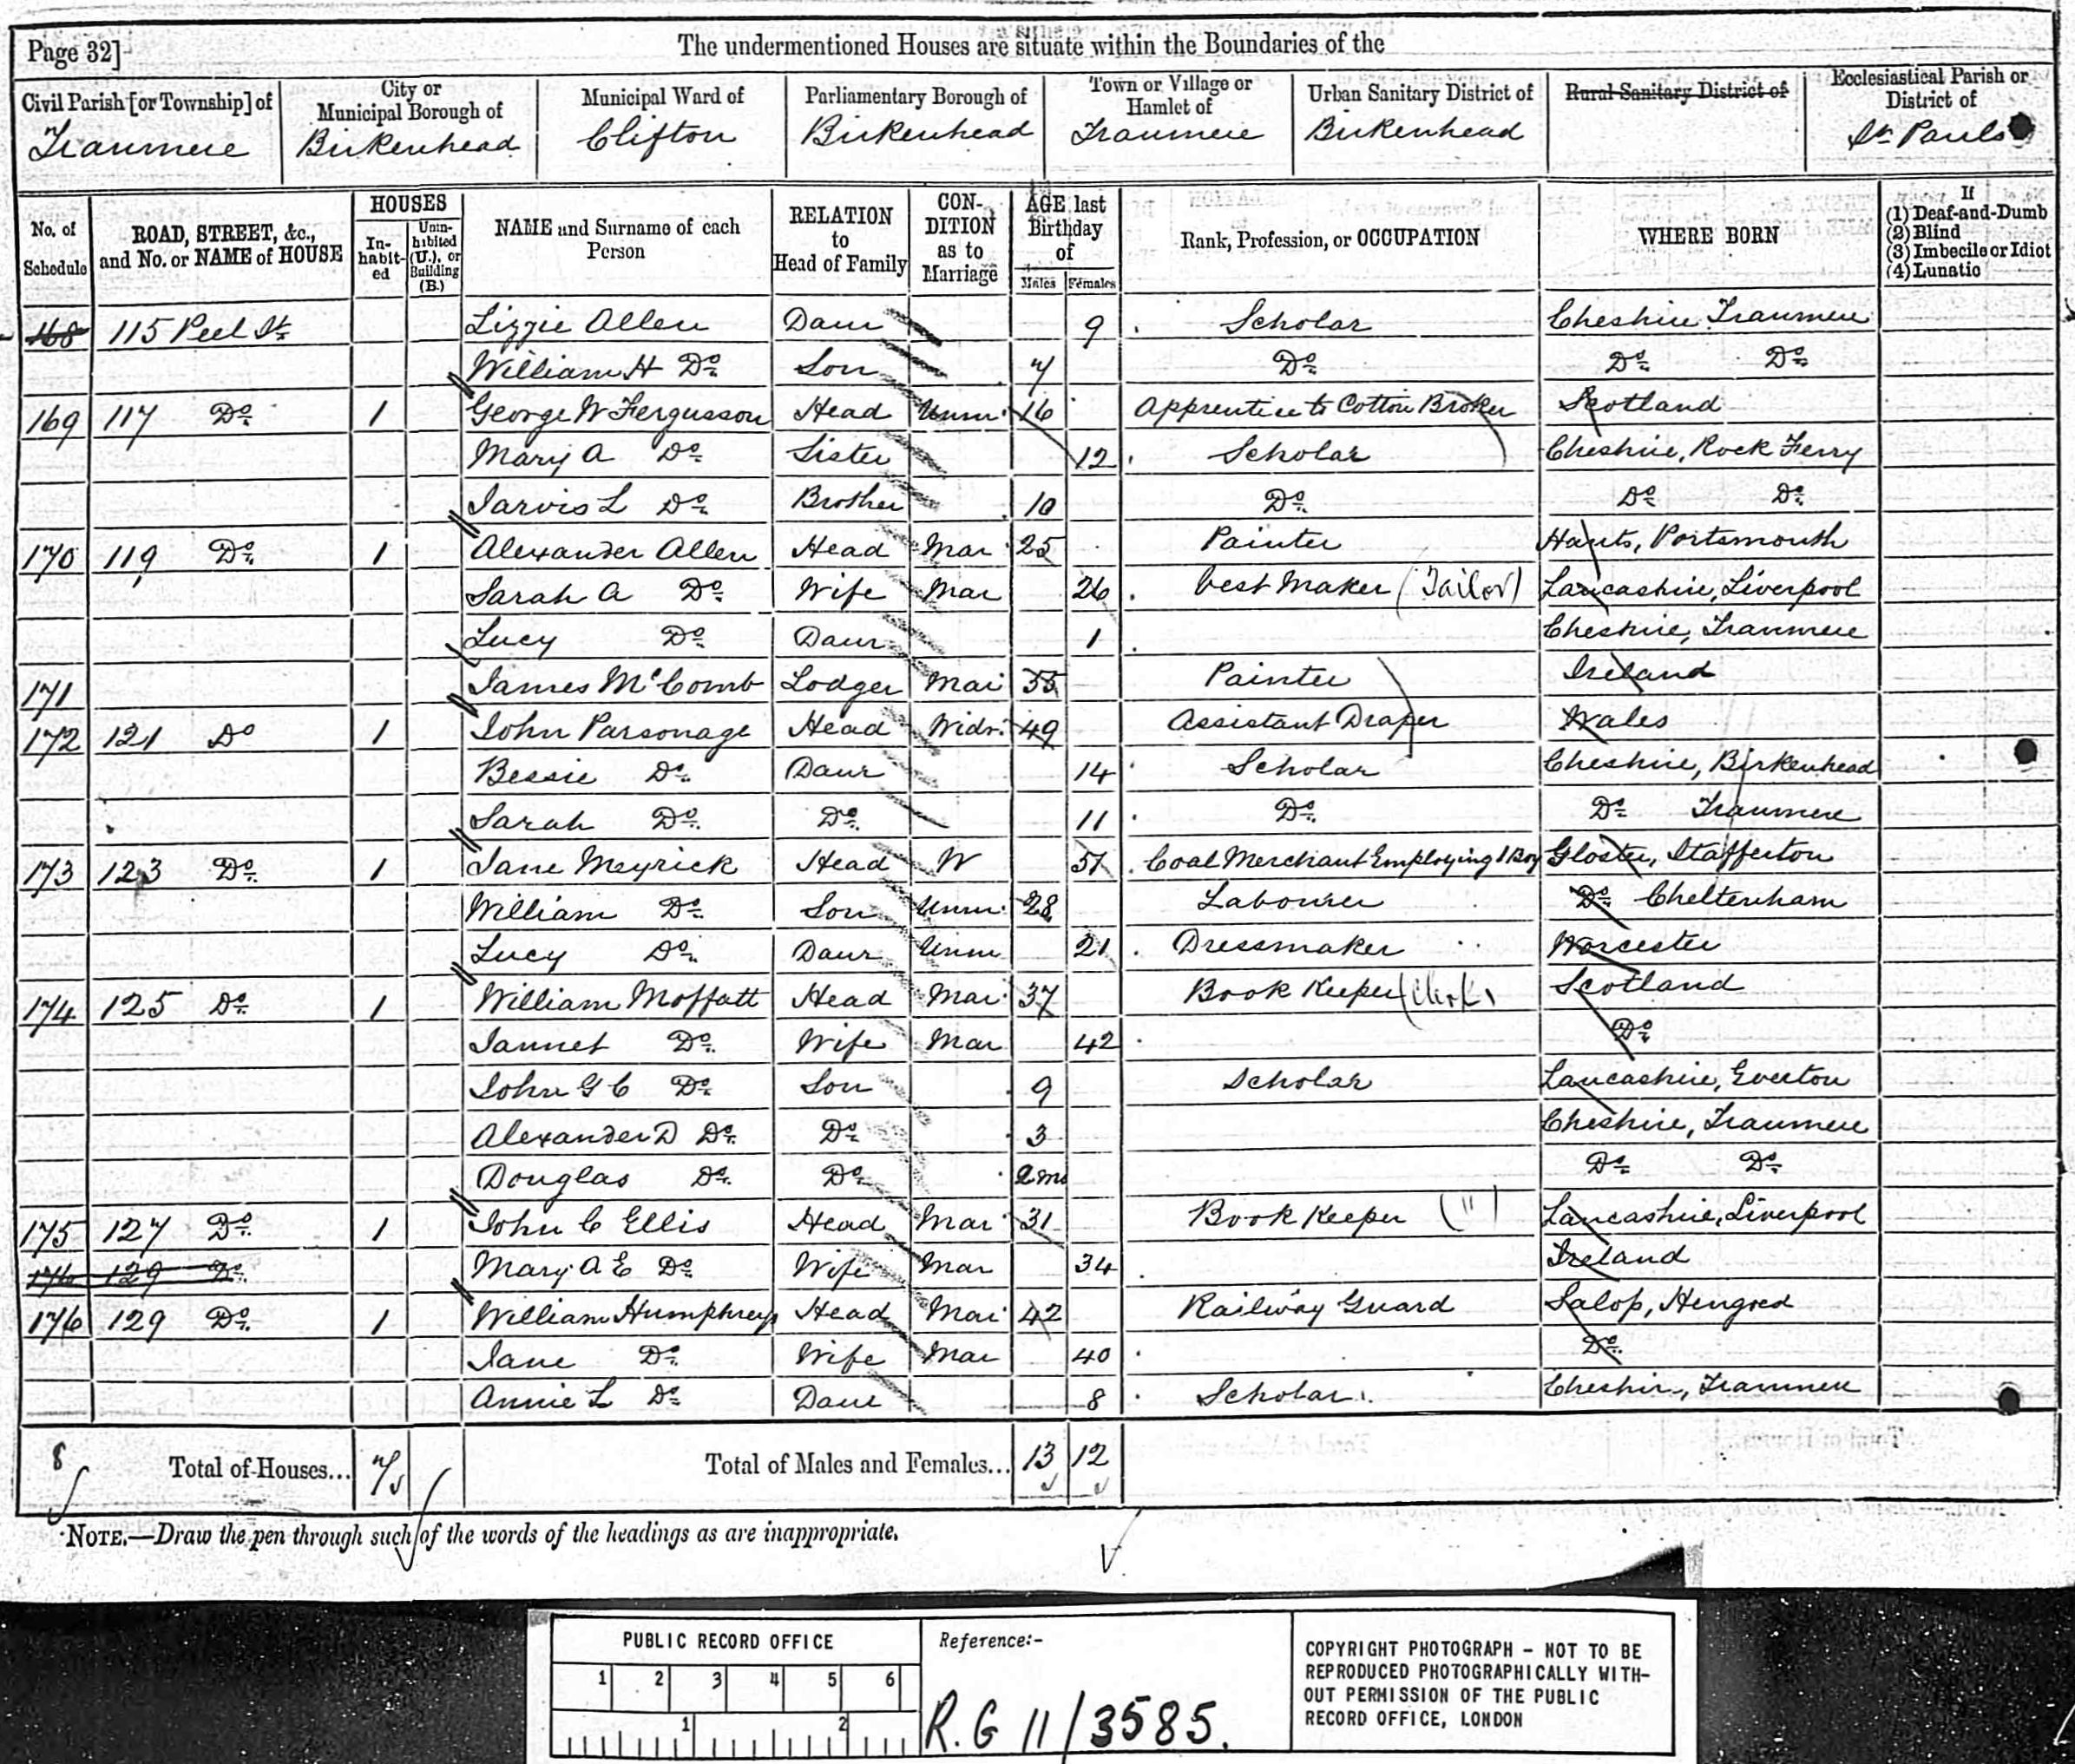 Page 32]
The undermentioned Houses are situate within the Boundaries of the
Civil Parish [or Township] of Tranmere
City or Municipal Borough of Birkenhead
Municipal Ward of Clifton
Parliamentary Borough of Birkenhead
Town or Village or Hamlet of Tranmere
Urban Sanitary District of Birkenhead
Rural Sanitary District of
Ecclesiastical Parish or District of St Pauls
No. of Schedule
ROAD, STREET, &c., and No. or NAME of HOUSE
HOUSES
In-habit-ed
Unin-hibited (U.), or Building (B.)
NAME and Surname of each Person
RELATION to Head of Family
CON-DITION as to Marriage
AGE last Birthday of
Males Females
Rank, Profession, or OCCUPATION
WHERE BORN
If
(1) Deaf-and-Dumb
(2) Blind
(3) Imbecile or Idiot
(4) Lunatic
168 115 Peel St Lizzie Allen Daur 9 Scholar Cheshire Tranmere
William H Do Son 7 Do Do Do
169 117 Do 1 George W Fergusson Head Unm 16 Apprentice to Cotton Broker Scotland
Mary A Do Sister 12 Scholar Cheshire, Rock Ferry
Jarvis L Do Brother 10 Do Do Do
170 119 Do 1 Alexander Allen Head Mar 25 Painter Hants, Portsmouth
Sarah A Do Wife Mar 26 Vest Maker (Tailor) Lancashire, Liverpool
Lucy Do Daur 1 Cheshire, Tranmere
171 James McComb Lodger Mar 55 Painter Ireland
172 121 Do 1 John Parsonage Head Widr. 49 Assistant Draper Wales
Bessie Do Daur 14 Scholar Cheshire, Birkenhead
Sarah Do Do 11 Do Do Tranmere
173 123 Do 1 Jane Meyrick Head W 51 Coal Merchant Employing 1 Boy Gloster, Stafferton
William Do Son Unm 28 Labourer Do Cheltenham
Lucy Do Daur Unm 21 Dressmaker Worcester
174 125 Do 1 William Moffatt Head Mar 37 Book Keeper (Clerk) Scotland
Jannet Do Wife Mar 42 Do
John G C Do Son 9 Scholar Lancashire, Everton
Alexander D Do Do 3 Cheshire, Tranmere
Douglas Do Do 2 mo Do Do
175 127 Do 1 John C Ellis Head Mar 31 Book Keeper (") Lancashire, Liverpool
176 129 Do Mary A E Do Wife Mar 34 Ireland
176 129 Do 1 William Humphreys Head Mar 42 Railway Guard Salop, Hengoed
Jane Do Wife Mar 40 Do
Annie L Do Daur 8 Scholar Cheshire, Tranmere
8 Total of Houses... Total of Males and Females... 13 12
NOTE.—Draw the pen through such of the words of the headings as are inappropriate.
PUBLIC RECORD OFFICE
1 2 3 4 5 6
1 2
Reference:-
R.G 11/3585.
COPYRIGHT PHOTOGRAPH - NOT TO BE
REPRODUCED PHOTOGRAPHICALLY WITH-
OUT PERMISSION OF THE PUBLIC
RECORD OFFICE, LONDON